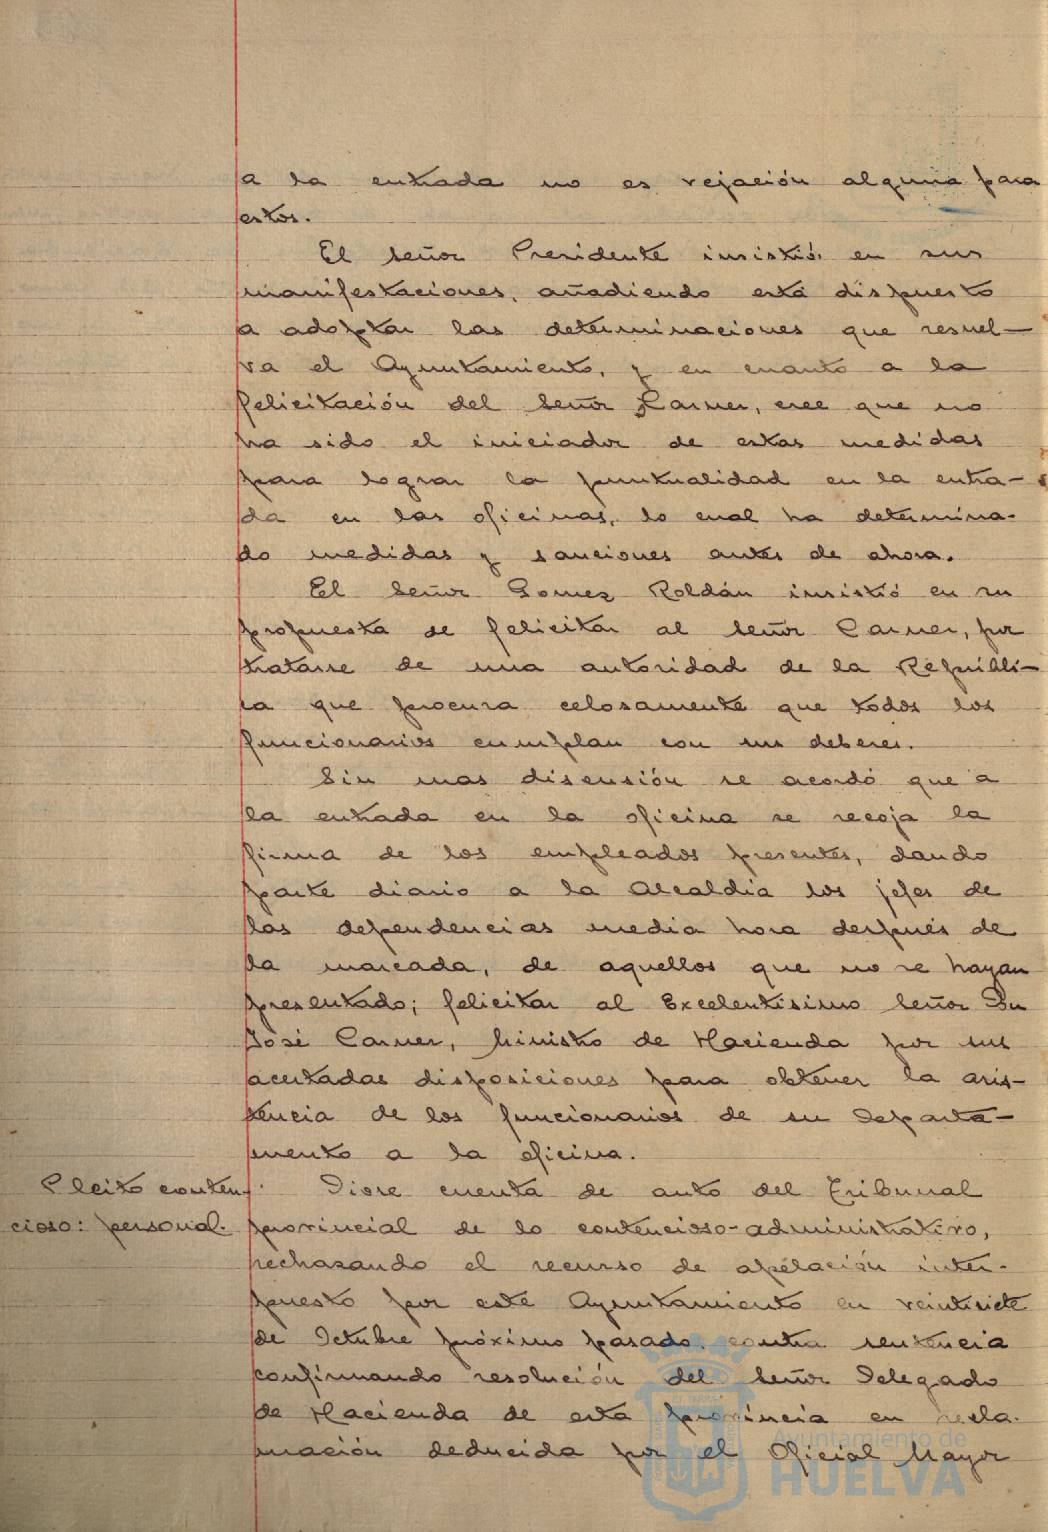 a la entrada no es vejación alguna para
estos.
El Señor Presidente insistió en sus
manifestaciones, añadiendo está dispuesto
a adoptar las determinaciones que resuel-
va el Ayuntamiento, y en cuanto a la
felicitación del Señor Carner, cree que no
ha sido el iniciador de estas medidas
para lograr la puntualidad en la entra-
da en las oficinas, lo cual ha determina-
do medidas y sanciones antes de ahora.
El Señor Gomez Roldán insistió en su
propuesta de felicitar al Señor Carner, por
tratarse de una autoridad de la Repúbli-
ca que procura celosamente que todos los
funcionarios cumplan con sus deberes.
Sin mas discusión se acordó que a
la entrada en la oficina se recoja la
firma de los empleados presentes, dando
parte diario a la Alcaldía los jefes de
las dependencias media hora después de
la marcada, de aquellos que no se hayan
presentado; felicitar al Excelentísimo Señor Don
José Carner, Ministro de Hacienda por sus
acertadas disposiciones para obtener la asis-
tencia de los funcionarios de su Departa-
mento a la oficina.
Pleito conten-
cioso: personal.
Diose cuenta de auto del Tribunal
provincial de lo contencioso-administrativo,
rechazando el recurso de apelación inter-
puesto por este Ayuntamiento en veintisiete
de Octubre próximo pasado contra sentencia
confirmando resolución del Señor Delegado
de Hacienda de esta provincia en recla-
mación deducida por el Oficial Mayor
Ayuntamiento de
HUELVA